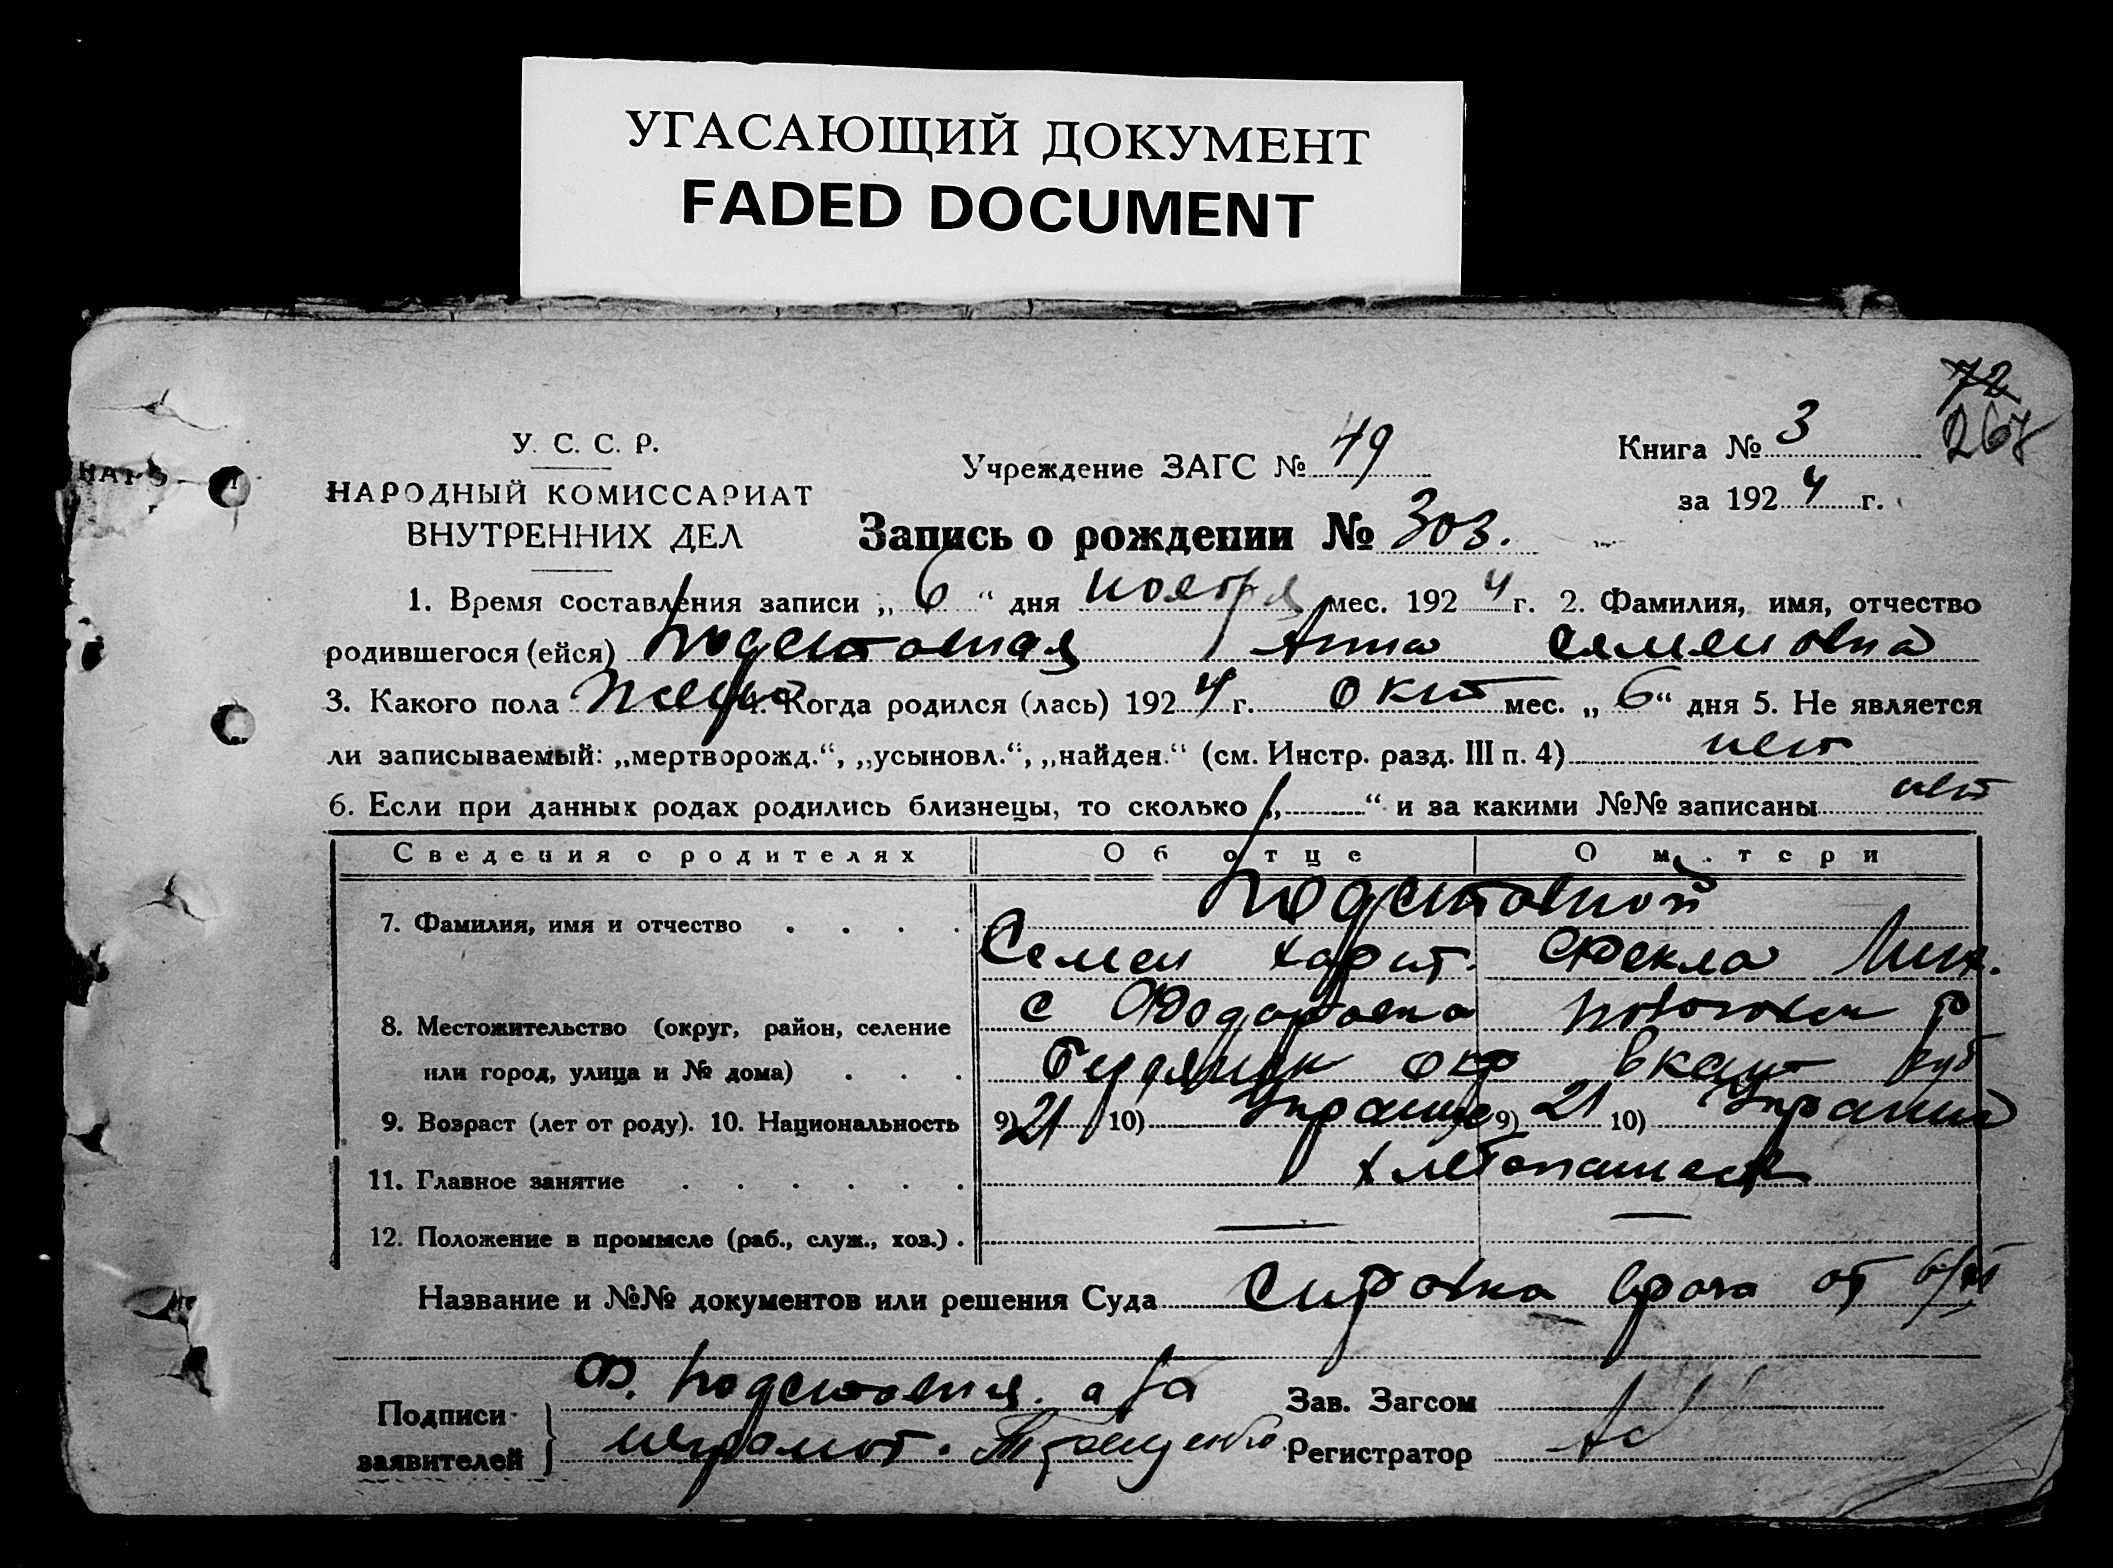 УГАСАЮЩИЙ ДОКУМЕНТ
FADED DOCUMENT
72
267
У. С. С. Р.
НАРОДНЫЙ КОМИССАРИАТ
ВНУТРЕННИХ ДЕЛ
Учреждение ЗАГС № 49
Книга № 3
за 1924 г.
Запись о рождении № 303.
1. Время составления записи „6“ дня ноября мес. 1924 г. 2. Фамилия, имя, отчество
родившегося (ейся) Подставная Анна Семеновна
3. Какого пола женс 4. Когда родился (лась) 1924 г. окт мес. „6“ дня 5. Не является
ли записываемый: „мертворожд.“, „усыновл.“, „найден.“ (см. Инстр. разд. III п. 4) нет
6. Если при данных родах родились близнецы, то сколько „ “ и за какими №№ записаны нет
Сведения о родителях Об отце О матери
Подставной
7. Фамилия, имя и отчество
Семен Харит. Фекла Мих.
8. Местожительство (округ, район, селение с Федоровка р
или город, улица и № дома) Бердянск окр Екат губ
9. Возраст (лет от роду). 10. Национальность 9) 21 10) Украин 9) 21 10) Украин
11. Главное занятие хлебопашест
12. Положение в промысле (раб., служ., хоз.)
Название и №№ документов или решения Суда Справка врача от
Подписи заявителей
Ф. Подставная. а за
неграмот.
Зав. Загсом
Регистратор